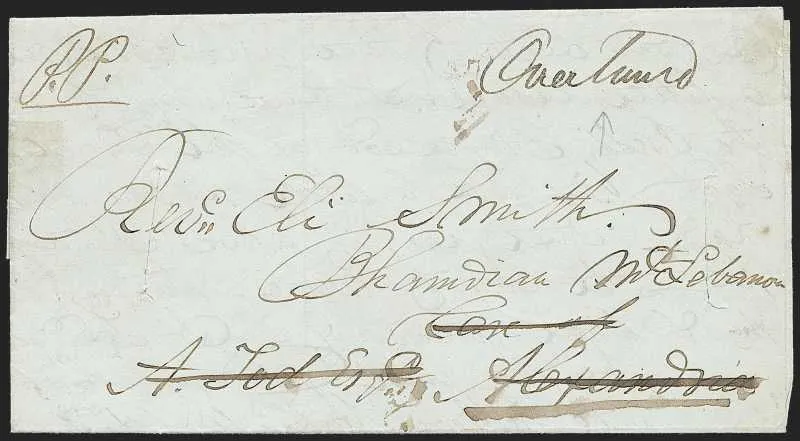 P.P. Overland
Revd. Eli Smith.
Bhamdian Mt Lebanon
Care of
A. Tod Esqr. Alexandria